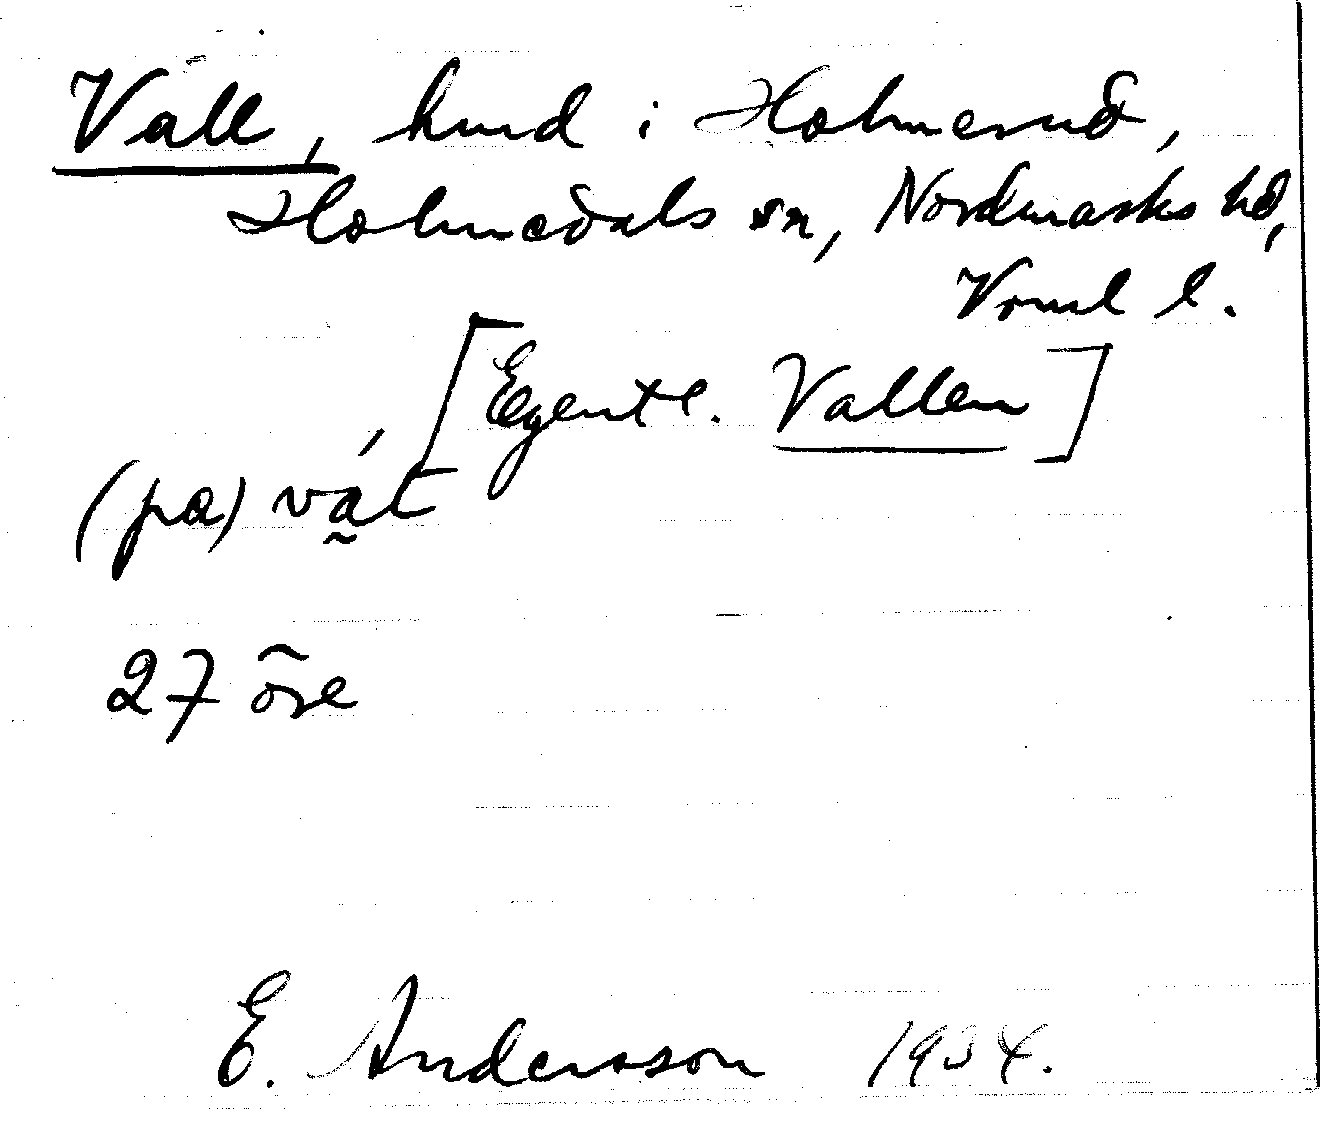 Vall, hmd i Holmerud,
Holmedals sn, Nordmarks hd,
Vrml l.
[Egentl. Vallen]
(pa) va̰t
27 öre
E. Andersson 1934.